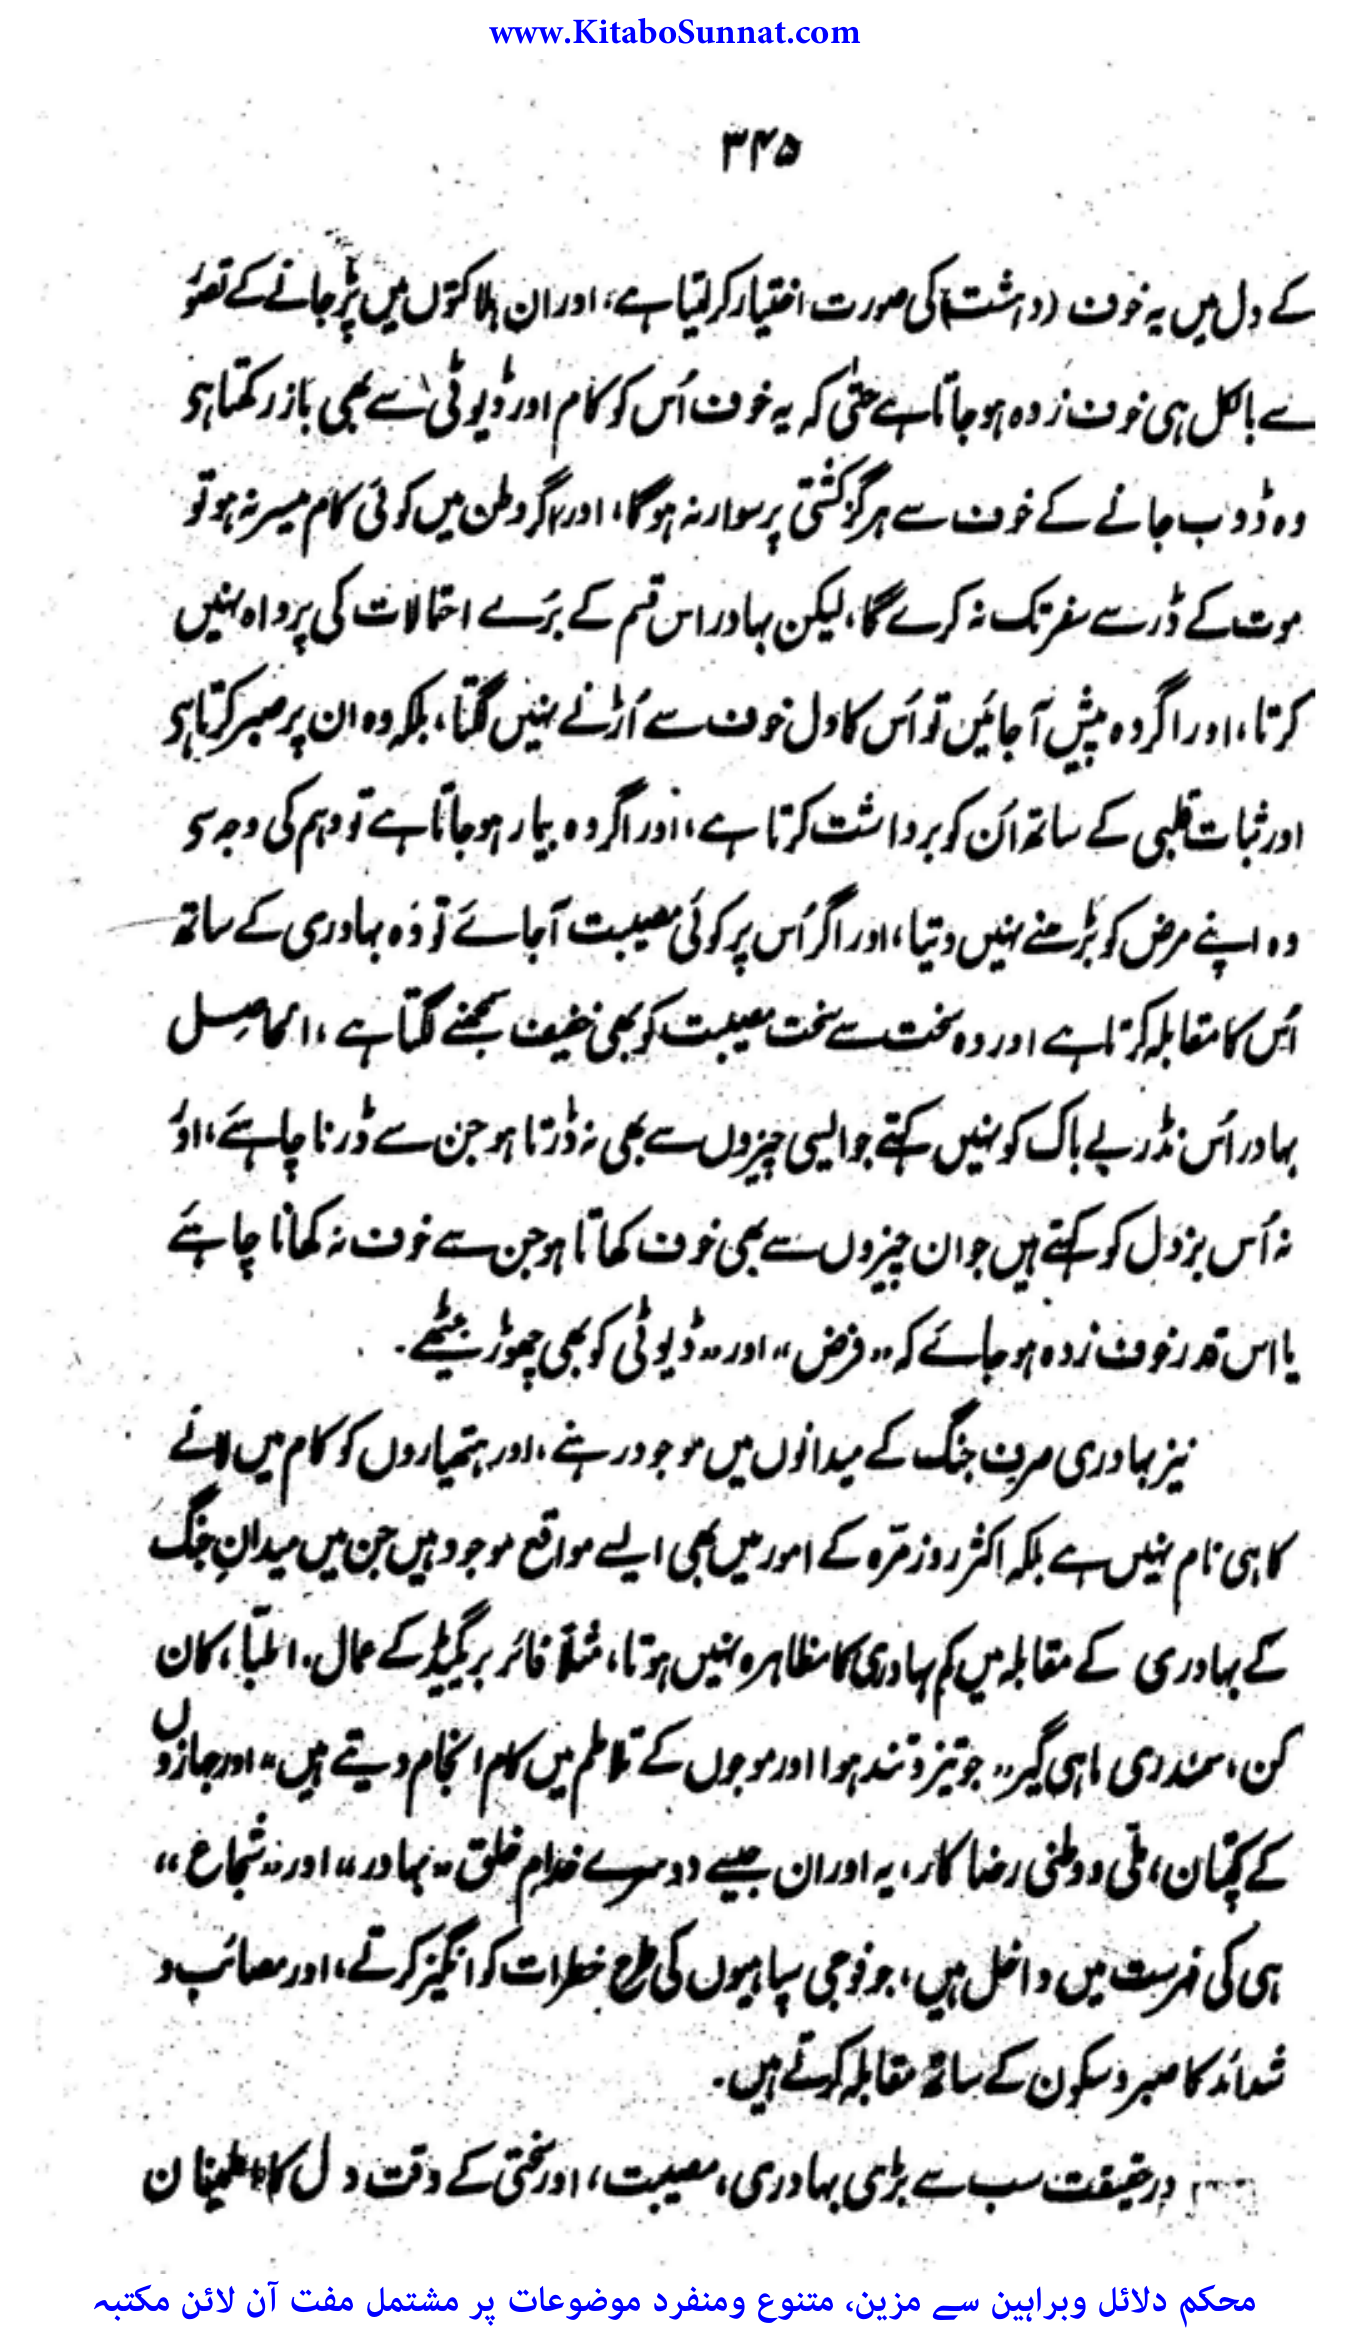 www.KitaboSunnat.com
۳۴۵
کے دل میں یہ خوف (دہشت) کی صورت اختیار کرلیتا ہے، اور ان ہلاکتوں میں پڑجانے کے تصور
سے بالکل ہی خوف زدہ ہوجاتا ہے حتیٰ کہ یہ خوف اُس کو کام اور ڈیوٹی سے بھی باز رکھتا ہی
وہ ڈوب جانے کے خوف سے ہرگز کشتی پر سوار نہ ہوگا، اور اگر وطن میں کوئی کام میسر نہ ہو تو
موت کے ڈر سے سفر تک نہ کرے گا، لیکن بہادر اس قسم کے بُرے احتمالات کی پرواہ نہیں
کرتا، اور اگر وہ پیش آجائیں تو اُس کا دل خوف سے اُڑنے نہیں لگتا، بلکہ وہ ان پر صبر کرتا ہی
اور ثبات قلبی کے ساتھ اُن کو برداشت کرتا ہے، اور اگر وہ بیمار ہوجاتا ہے تو وہم کی وجہ سی
وہ اپنے مرض کو بڑھنے نہیں دیتا، اور اگر اُس پر کوئی مصیبت آجائے تو وہ بہادری کے ساتھ
اُس کا مقابلہ کرتا ہے اور وہ سخت سے سخت مصیبت کو بھی خفیف سمجھنے لگتا ہے، الحاصل
بہادر اُس نڈر بے باک کو نہیں کہتے جو ایسی چیزوں سے بھی نہ ڈرتا ہو جن سے ڈرنا چاہئے، اور
نہ اُس بزدل کو کہتے ہیں جو ان چیزوں سے بھی خوف کھاتا ہو جن سے خوف نہ کھانا چاہئے
یا اس قدر خوف زدہ ہوجائے کہ ”فرض“ اور ”ڈیوٹی کو بھی چھوڑ بیٹھے۔
نیز بہادری صرف جنگ کے میدانوں میں موجود رہنے، اور ہتھیاروں کو کام میں لانے
کا ہی نام نہیں ہے بلکہ اکثر روزمرّہ کے امور میں بھی ایسے مواقع موجود ہیں جن میں میدانِ جنگ
کے بہادری کے مقابلہ میں کم بہادری کا مظاہرہ نہیں ہوتا، مثلاً فائر بریگیڈ کے عمال، اطبّا، کان
کن، سمندری ماہی گیر ”جو تیز و تند ہوا اور موجوں کے تلاطم میں کام انجام دیتے ہیں“ اور جہازوں
کے کپتان، ملّی و وطنی رضا کار، یہ اور ان جیسے دوسرے خدام خلق ”بہادر“ اور ”شجاع“
ہی کی فہرست میں داخل ہیں، جو فوجی سپاہیوں کی طرح خطرات کو انگیز کرتے، اور مصائب و
شدائد کا صبر و سکون کے ساتھ مقابلہ کرتے ہیں۔
درحقیقت سب سے بڑی بہادری، مصیبت، اور سختی کے وقت دل کا اطمینان
محکم دلائل وبراہین سے مزین، متنوع ومنفرد موضوعات پر مشتمل مفت آن لائن مکتبہ